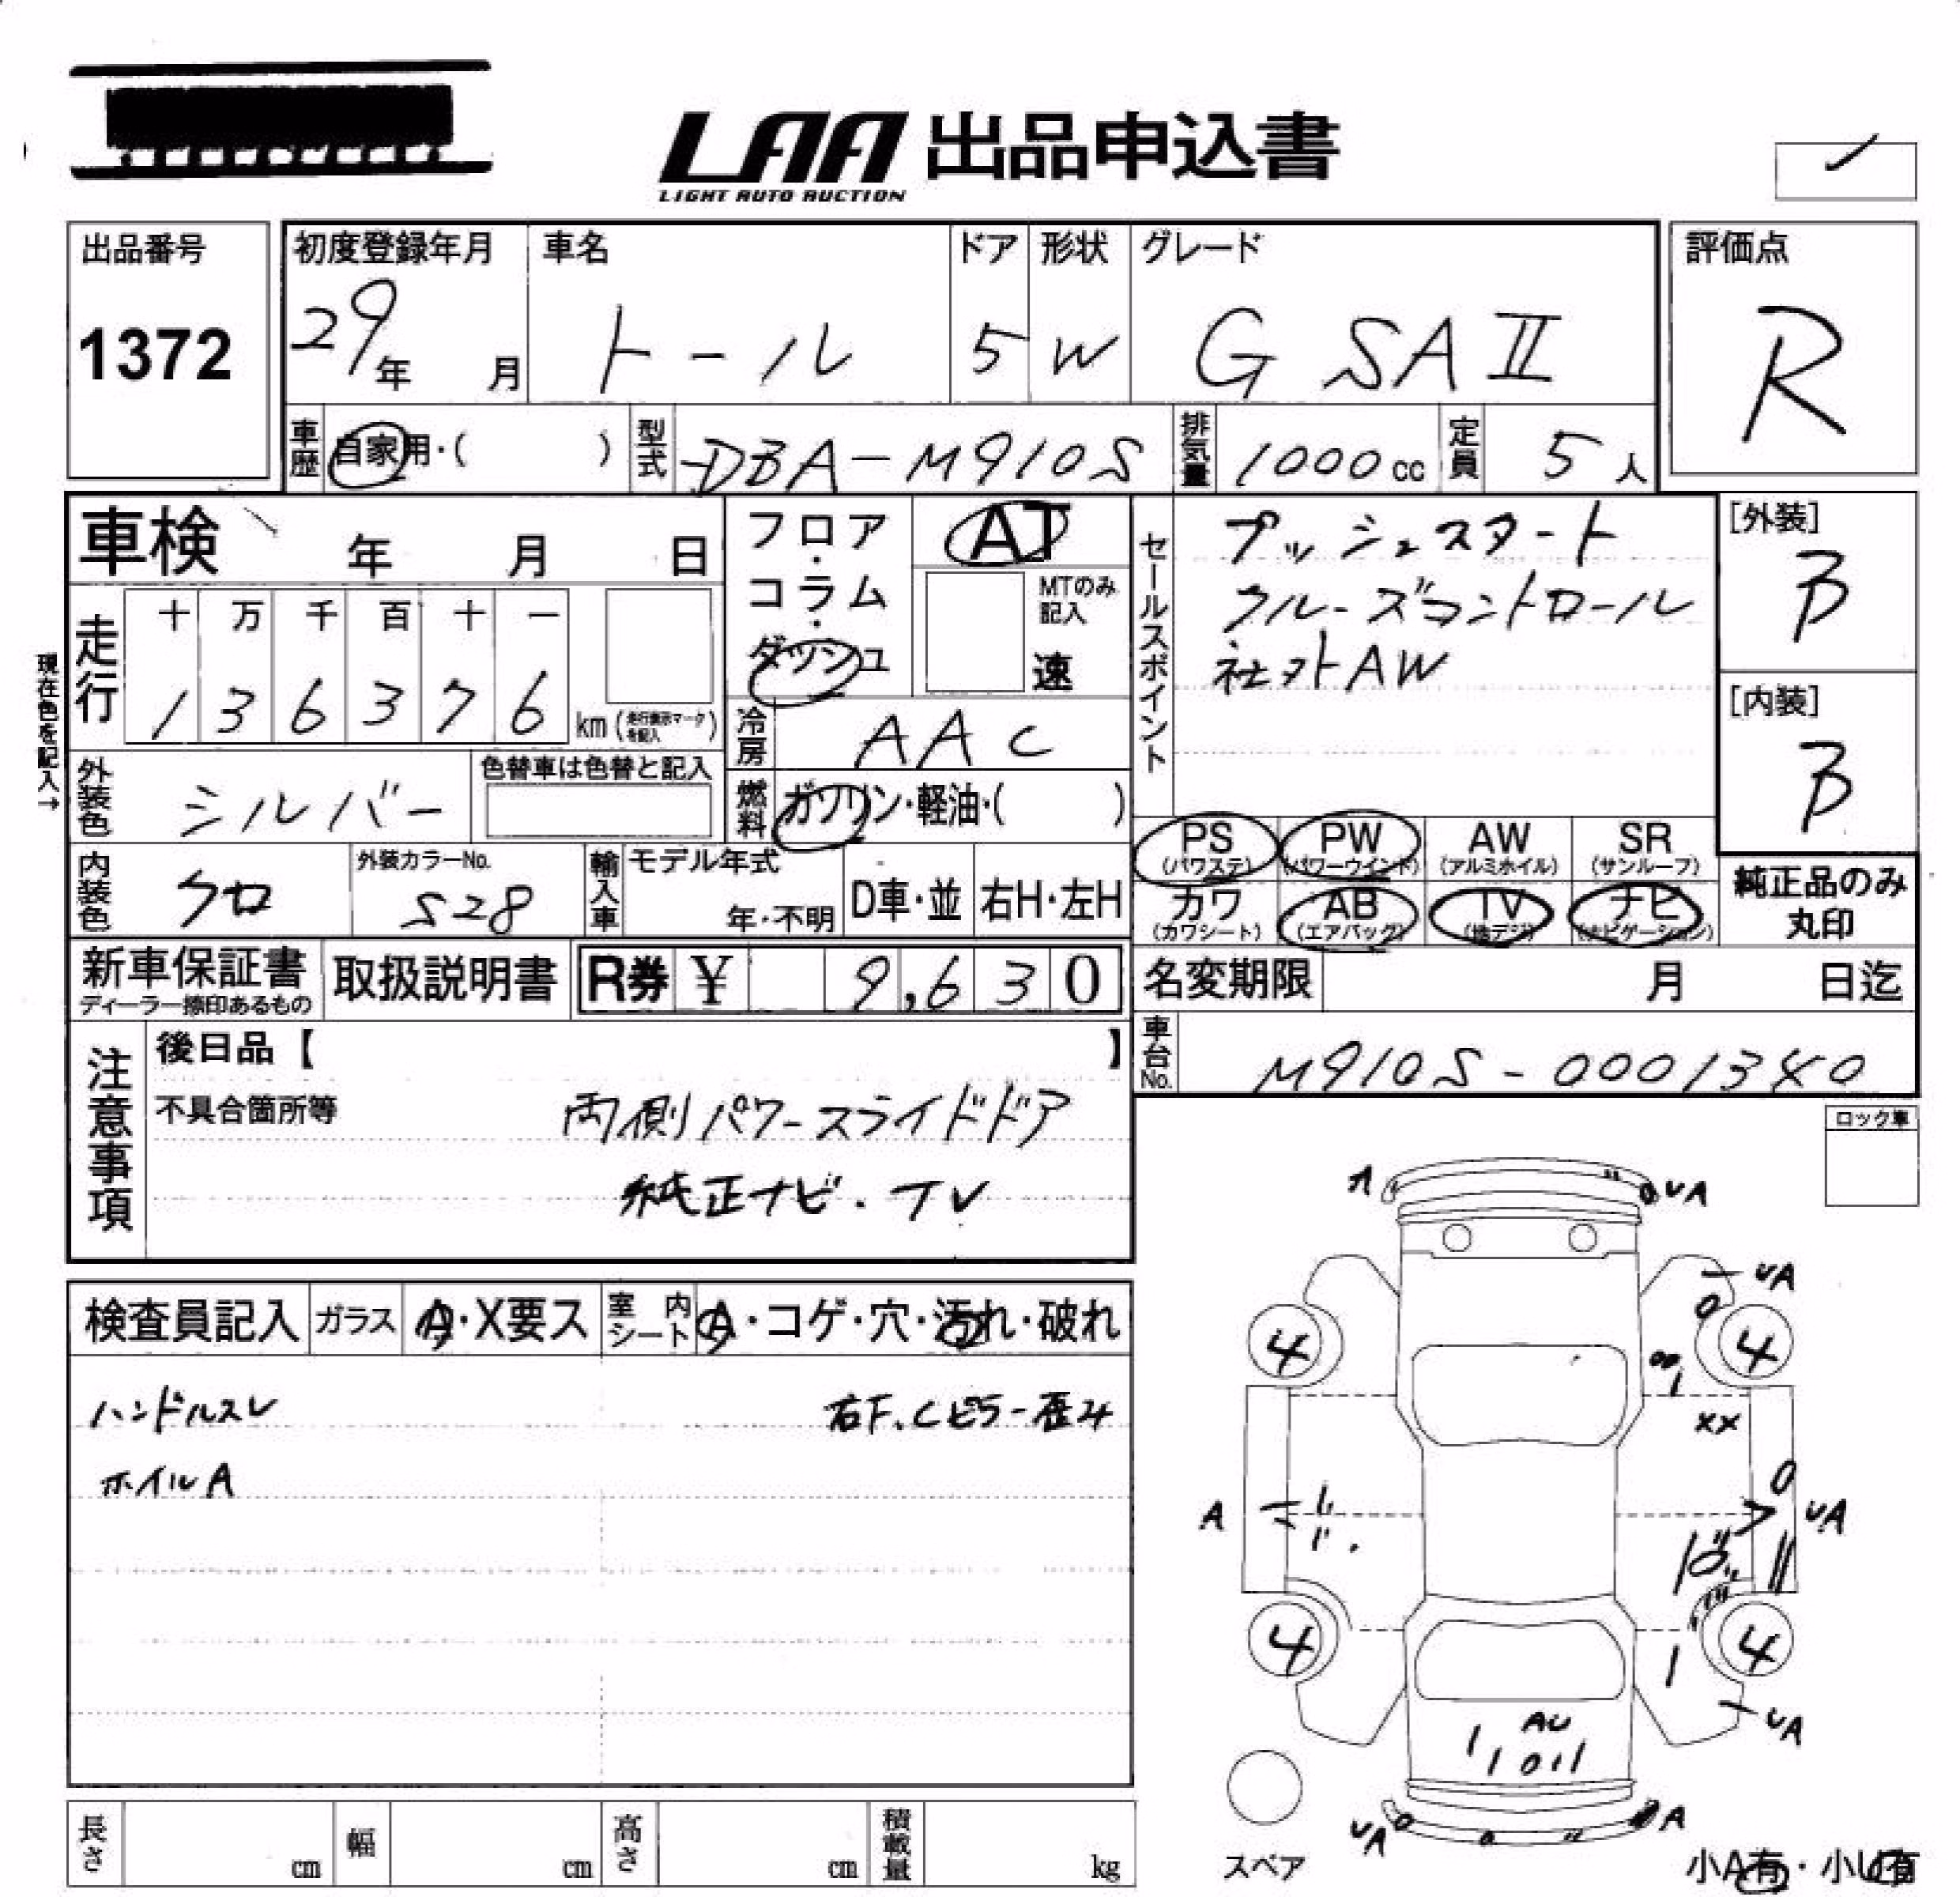 LAA 出品申込書
LIGHT AUTO AUCTION
出品番号
1372
初度登録年月
29年 月
車名
トール
ドア
5
形状
W
グレード
G SAⅡ
評価点
R
車歴 自家用・( )
型式 DBA-M910S
排気量 1000cc
定員 5人
車検 年 月 日
フロア・コラム・ダッシュ
AT
MTのみ記入
速
セールスポイント
プッシュスタート
クルーズコントロール
社外AW
[外装]
B
[内装]
B
現在色を記入→
走行
十 万 千 百 十 一
1 3 6 3 7 6 km (走行表示マークを記入)
冷房 AAC
外装色 シルバー
色替車は色替と記入
燃料 ガソリン・軽油・( )
PS (パワステ) PW (パワーウインド) AW (アルミホイル) SR (サンルーフ)
カワ (カワシート) AB (エアバッグ) TV (地デジ) ナビ (ナビゲーション)
純正品のみ丸印
内装色 クロ
外装カラーNo. S28
輸入車 モデル年式
年・不明
D車・並 右H・左H
新車保証書
ディーラー捺印あるもの
取扱説明書
R券 ¥ 9,630
名変期限 月 日迄
車台No. M910S-0001340
注意事項
後日品【 】
不具合箇所等
両側パワースライドドア
純正ナビ・TV
ロック車
検査員記入 ガラス A・X要ス 室内シート A・コゲ・穴・汚れ・破れ
ハンドルスレ
右F、Cピラー歪み
ホイルA
A UA
UA
4 4
XX
A UA
4 4
AU
UA
UA A
スペア
小A有・小U有
長さ cm 幅 cm 高さ cm 積載量 kg